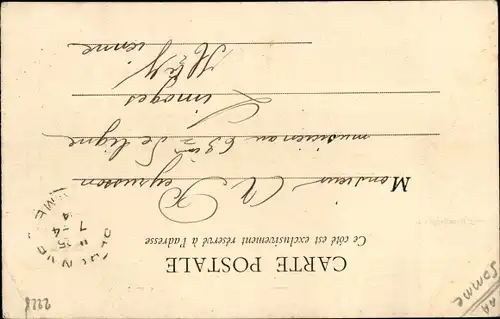 CARTE POSTALE
Ce côté est exclusivement réservé à l'adresse
Monsieur A. Peyrusson
musicien au 63ème de ligne
Limoges
Hte Vienne
7
14
2228
AA
Somme